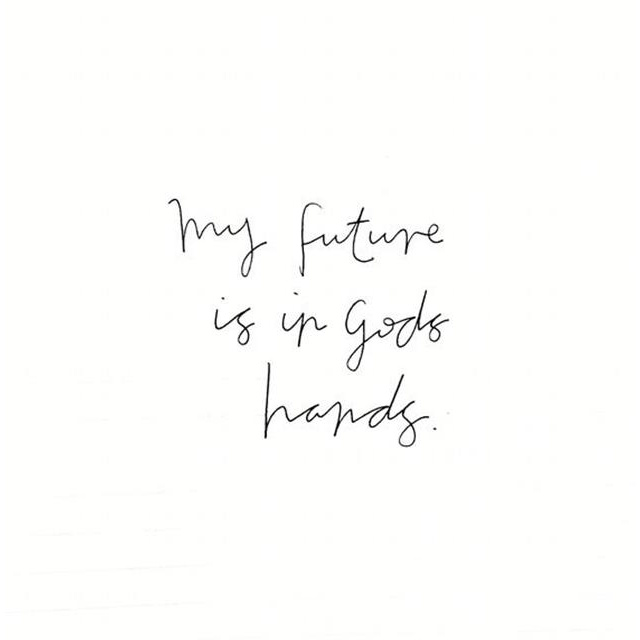 my future
is in Gods
hands.